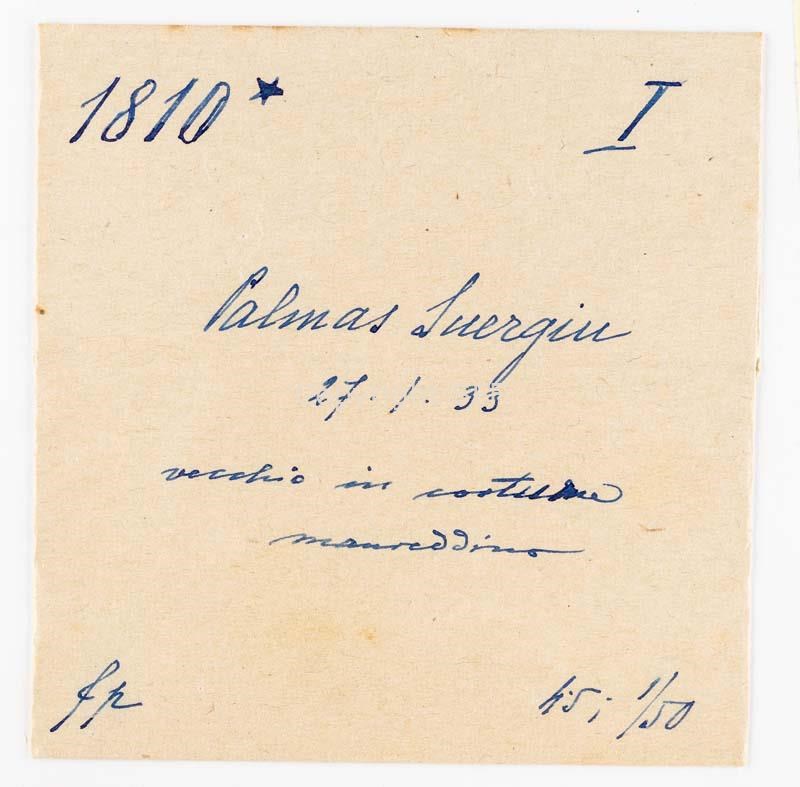 1810*
I
Palmas Suergiu
27.1.33
vecchio in costume
maureddino
fp
4.5; 1/50